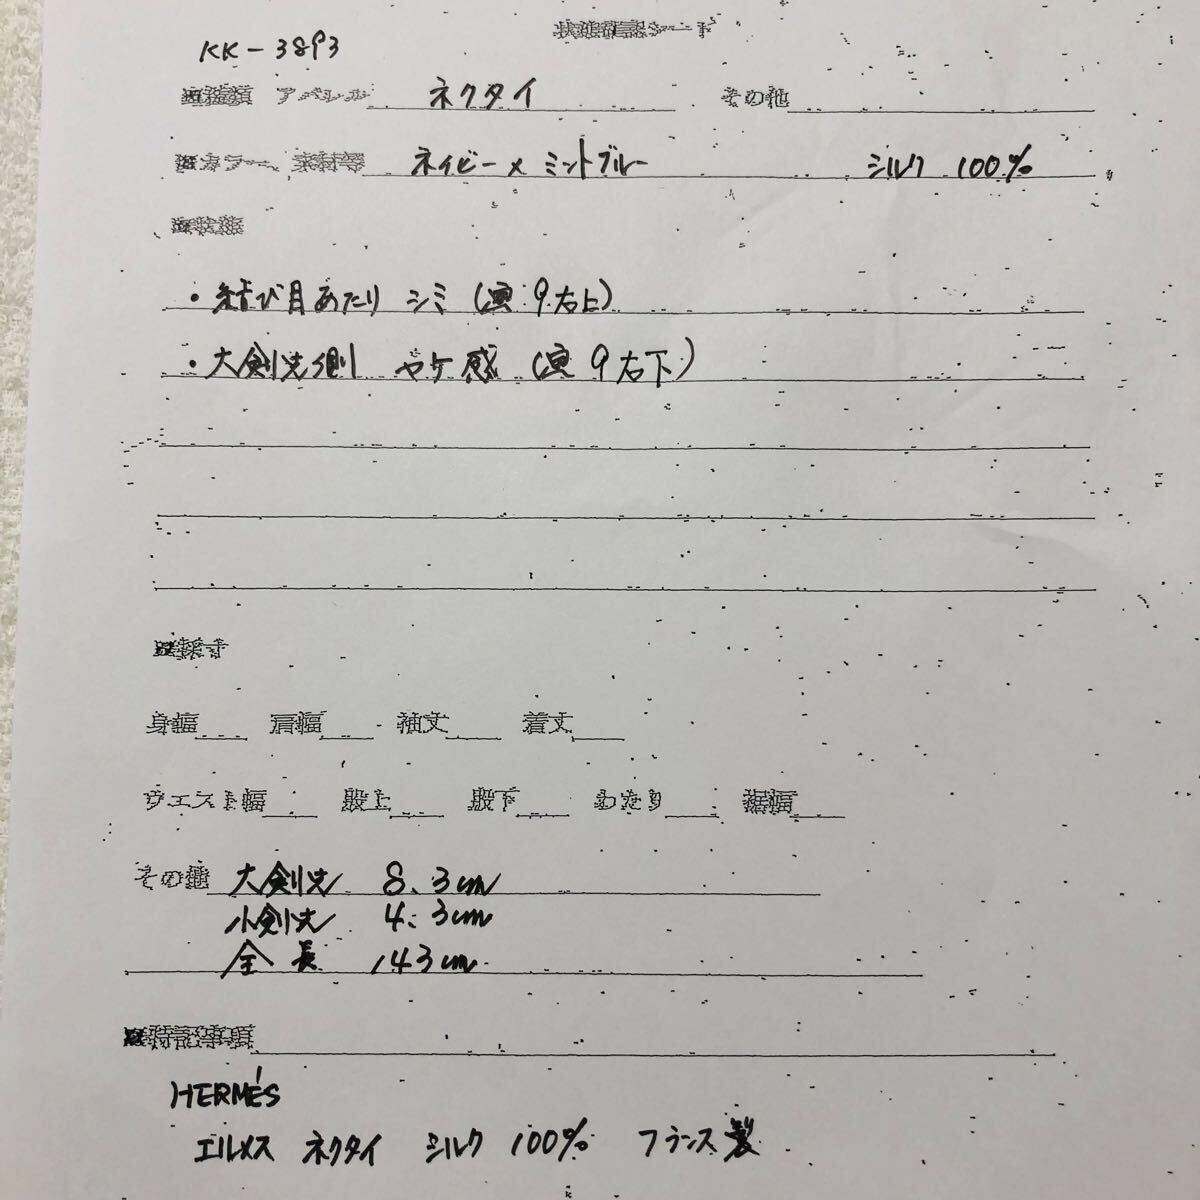 状態確認シート
KK-3893
■種類 アパレル ネクタイ その他
■カラー、素材等 ネイビー×ミントブルー シルク 100%
■状態
・結び目あたり シミ (演:9右上)
・大剣先側 ヤケ感 (演 9右下)
■採寸
身幅 肩幅 袖丈 着丈
ウエスト幅 股上 股下 わたり 裾幅
その他 大剣先 8.3cm
小剣先 4.3cm
全長 143cm
■特記事項
HERMÉS
エルメス ネクタイ シルク 100% フランス製